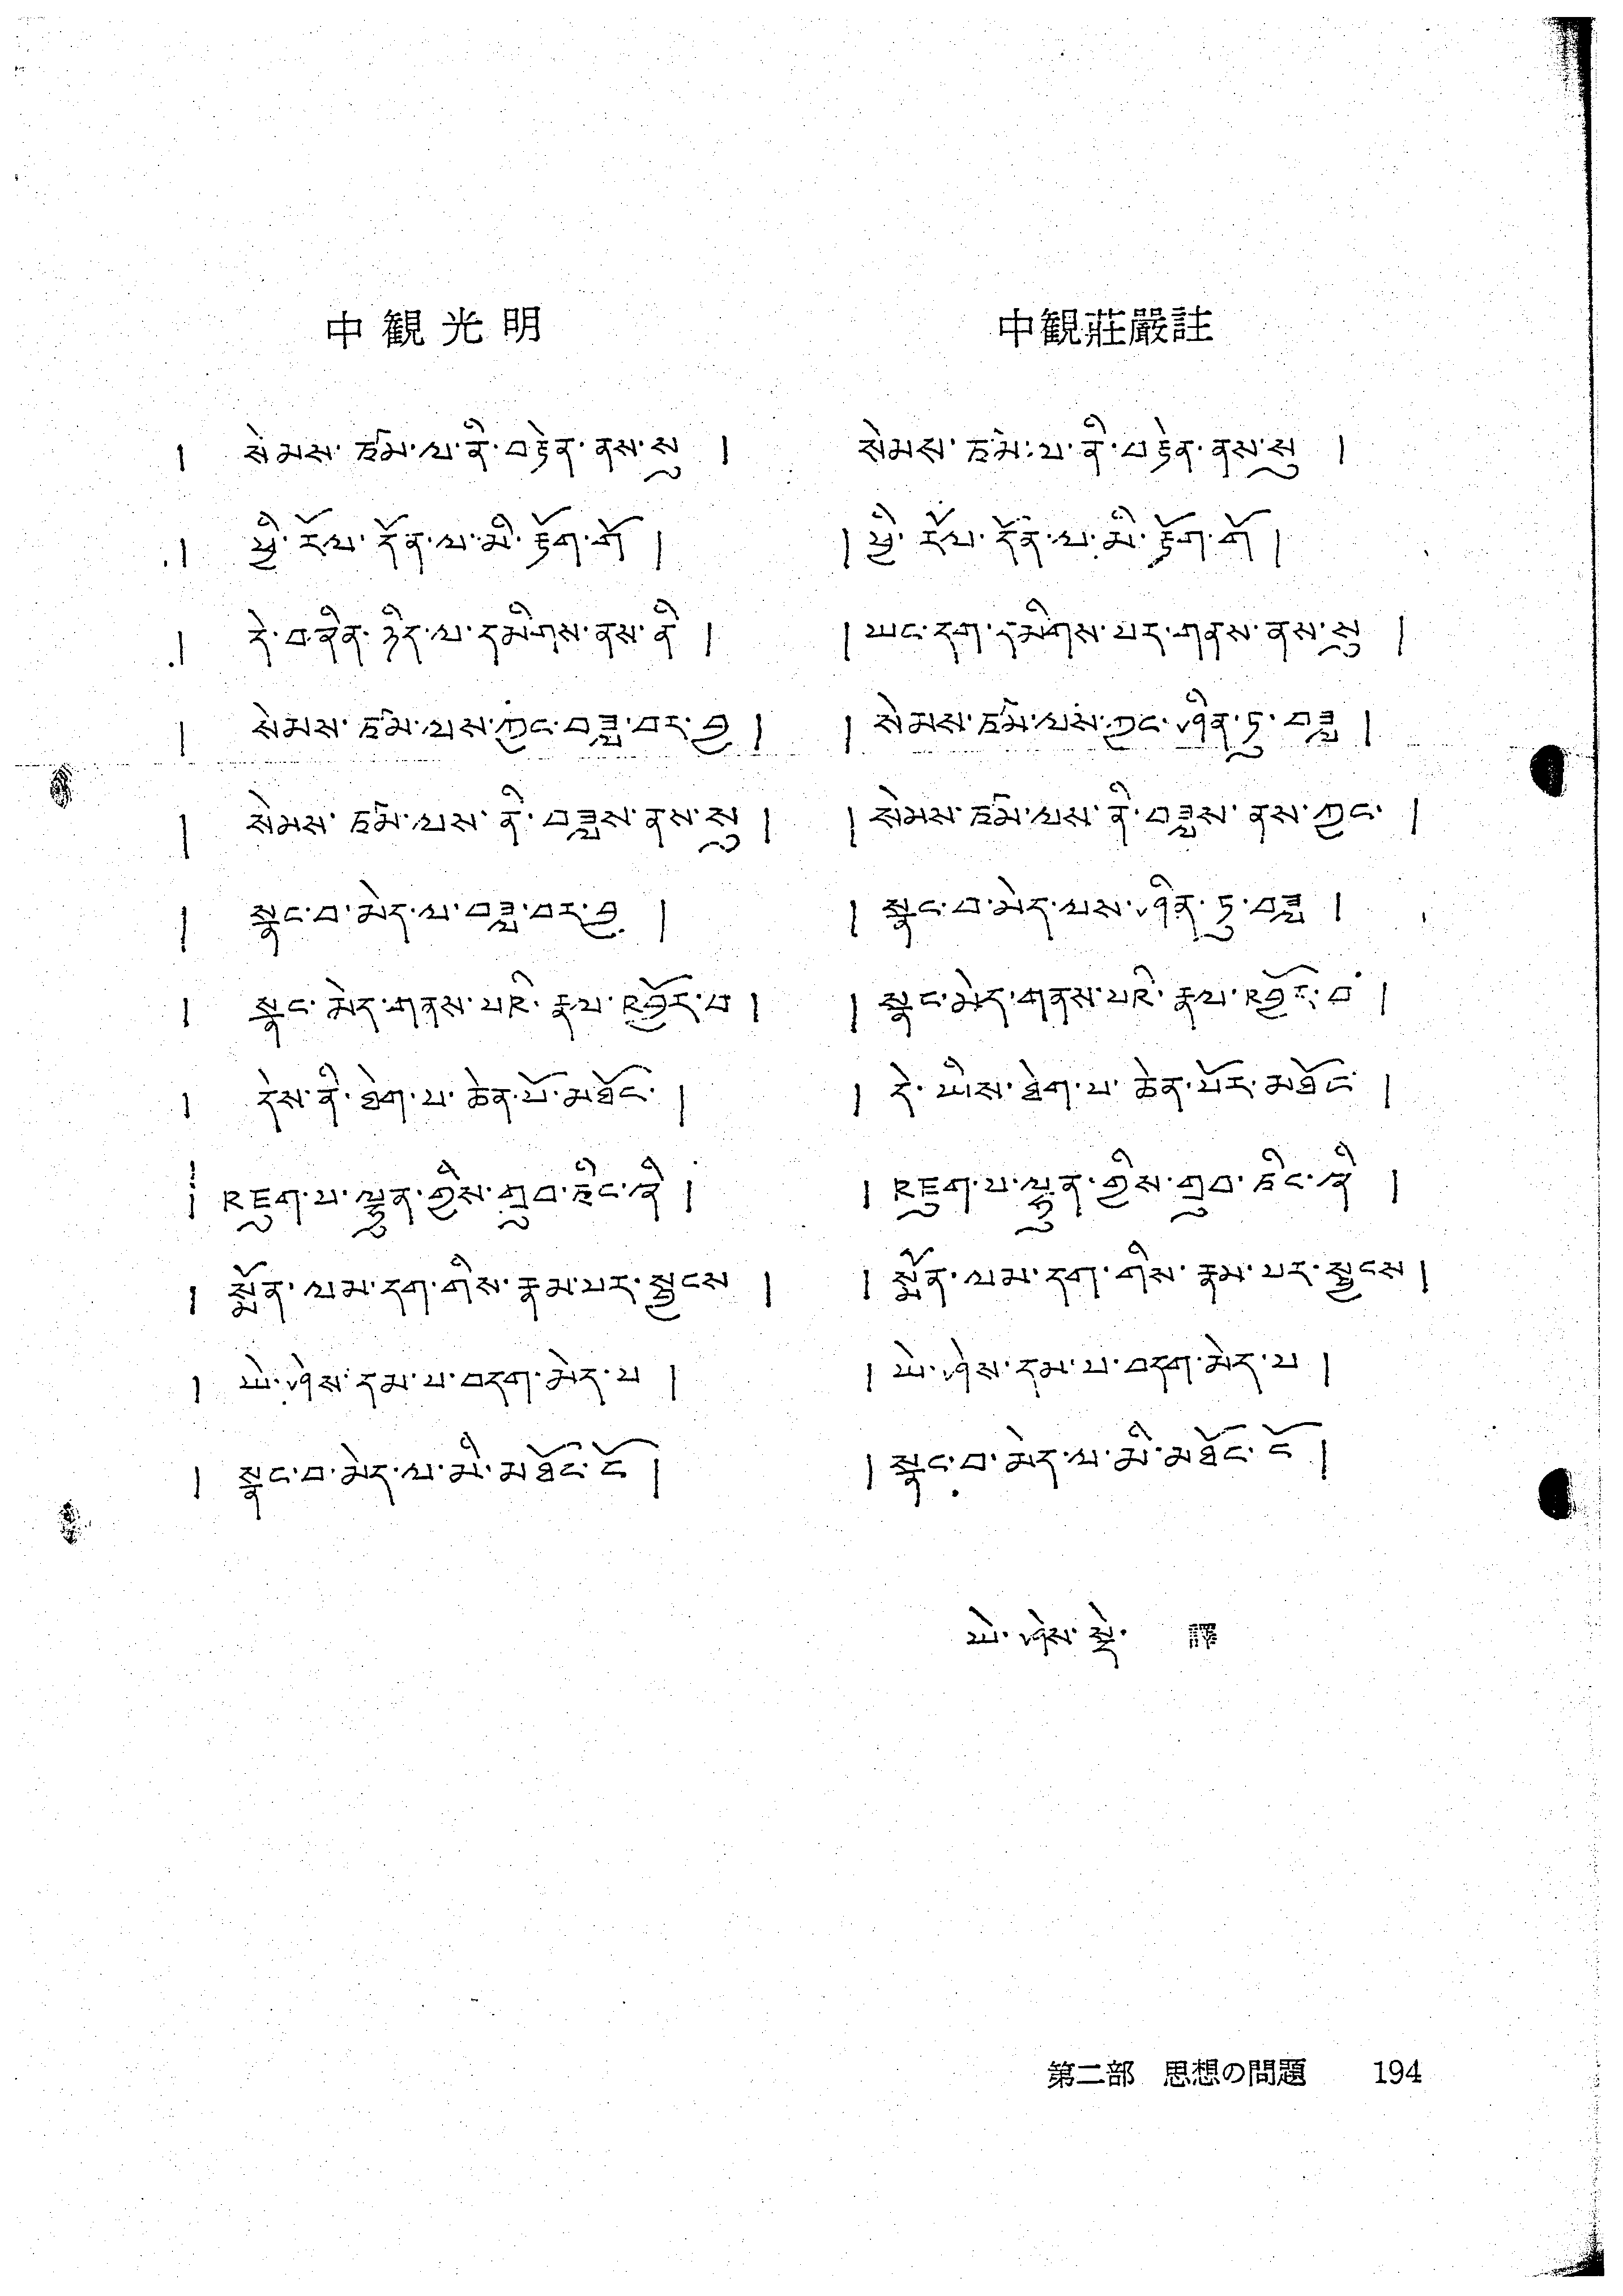 中観光明
། སེམས་ཙམ་ལ་ནི་བརྟེན་ནས་སུ །
། ཕྱི་རོལ་དོན་ལ་མི་རྟོག་གོ །
། དེ་བཞིན་ཉིད་ལ་དམིགས་ནས་ནི །
། སེམས་ཙམ་ལས་ཀྱང་བཟླ་བར་བྱ །
། སེམས་ཙམ་ལས་ནི་བཟླས་ནས་སུ །
། སྣང་བ་མེད་ལ་བཟླ་བར་བྱ །
། སྣང་མེད་གནས་པའི་རྣལ་འབྱོར་པ །
། དེས་ནི་ཐེག་པ་ཆེན་པོ་མཐོང་ །
། འཇུག་པ་ལྷུན་གྱིས་གྲུབ་ཅིང་ཞི །
། སྨོན་ལམ་དག་གིས་རྣམ་པར་སྦྱངས །
། ཡེ་ཤེས་དམ་པ་བདག་མེད་པ །
། སྣང་བ་མེད་ལ་མི་མཐོང་ངོ །
中観莊嚴註
སེམས་ཙམ་ལ་ནི་བརྟེན་ནས་སུ །
། ཕྱི་རོལ་དོན་ལ་མི་རྟོག་གོ །
། ཡང་དག་དམིགས་པར་གནས་ནས་སུ །
། སེམས་ཙམ་ལས་ཀྱང་ཤིན་ཏུ་བཟླ །
། སེམས་ཙམ་ལས་ནི་བཟླས་ནས་ཀྱང་ །
། སྣང་བ་མེད་ལས་ཤིན་ཏུ་བཟླ །
། སྣང་མེད་གནས་པའི་རྣལ་འབྱོར་པ །
། དེ་ཡིས་ཐེག་པ་ཆེན་པོར་མཐོང །
། འཇུག་པ་ལྷུན་གྱིས་གྲུབ་ཅིང་ཞི །
། སྨོན་ལམ་དག་གིས་རྣམ་པར་སྦྱངས །
། ཡེ་ཤེས་དམ་པ་བདག་མེད་པ །
། སྣང་བ་མེད་ལ་མི་མཐོང་ངོ །
ཡེ་ཤེས་སྡེ་ 譯
第二部 思想の問題 194